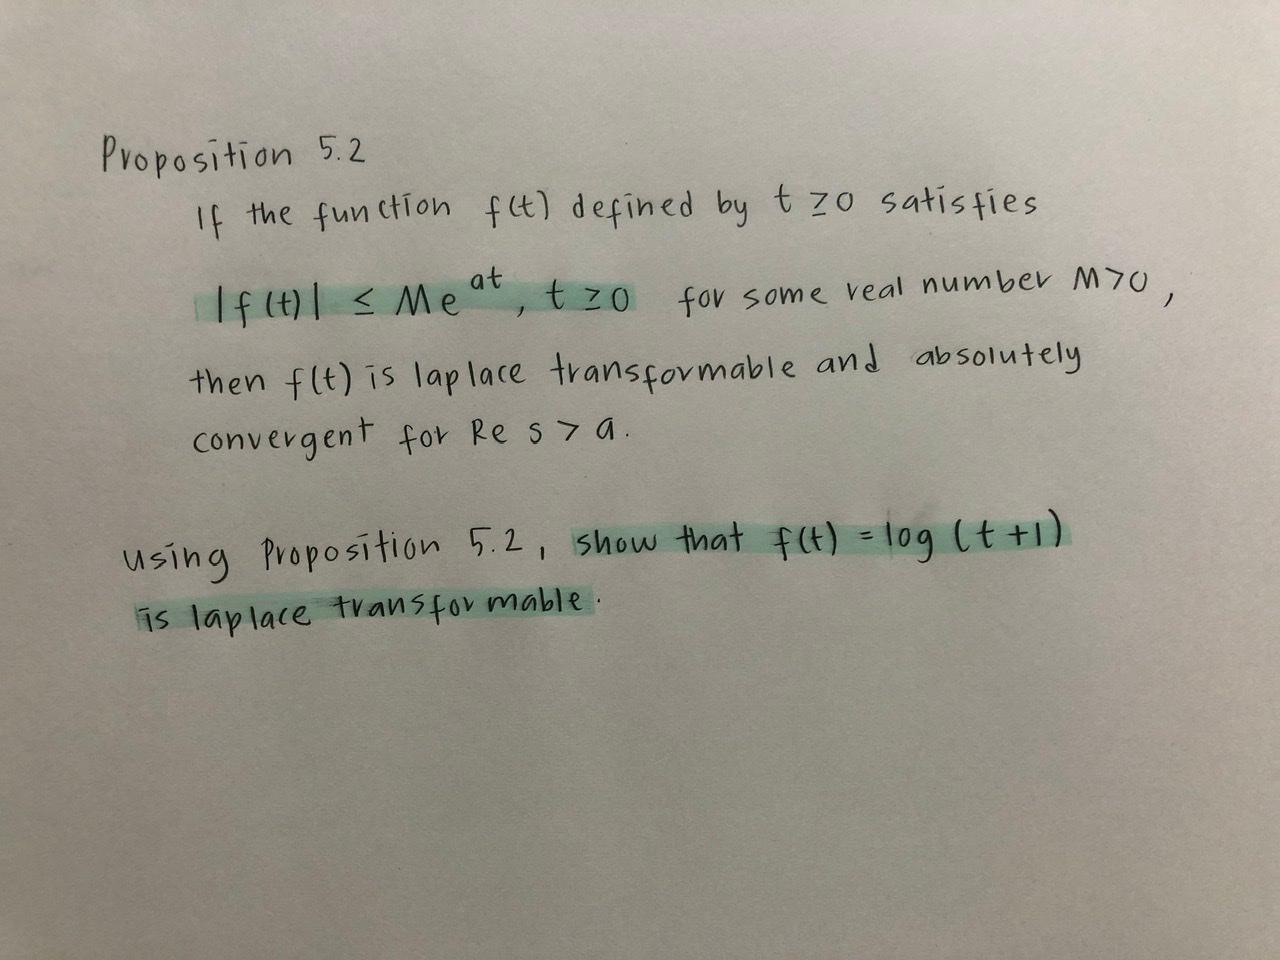 Proposition 5.2
If the function f(t) defined by t ≥ 0 satisfies
|f(t)| ≤ Me^{at}, t ≥ 0 for some real number M>0,
then f(t) is laplace transformable and absolutely
convergent for Re s > a.
using Proposition 5.2, show that f(t) = log (t+1)
is laplace transformable.